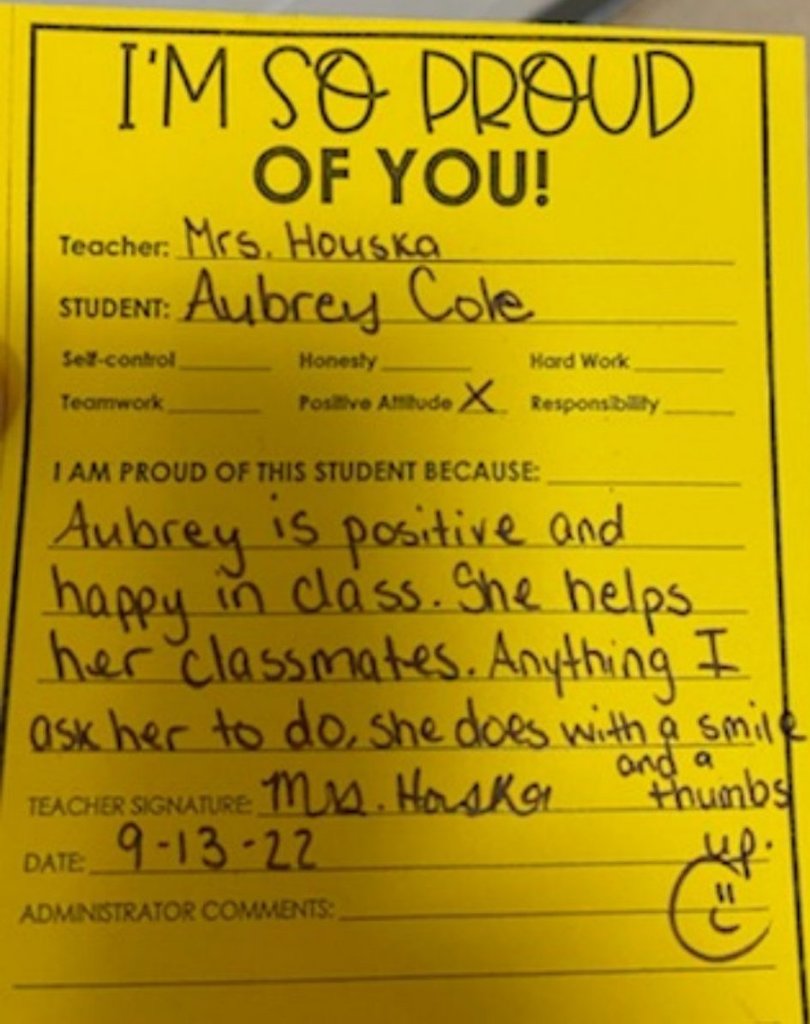 I'M SO PROUD
OF YOU!
Teacher: Mrs. Houska
STUDENT: Aubrey Cole
Self-control Honesty Hard Work
Teamwork Positive Attitude X Responsibility
I AM PROUD OF THIS STUDENT BECAUSE:
Aubrey is positive and
happy in class. She helps
her classmates. Anything I
ask her to do, she does with a smile
and a
thumbs
up.
TEACHER SIGNATURE: Mrs. Houska
DATE: 9-13-22
ADMINISTRATOR COMMENTS: